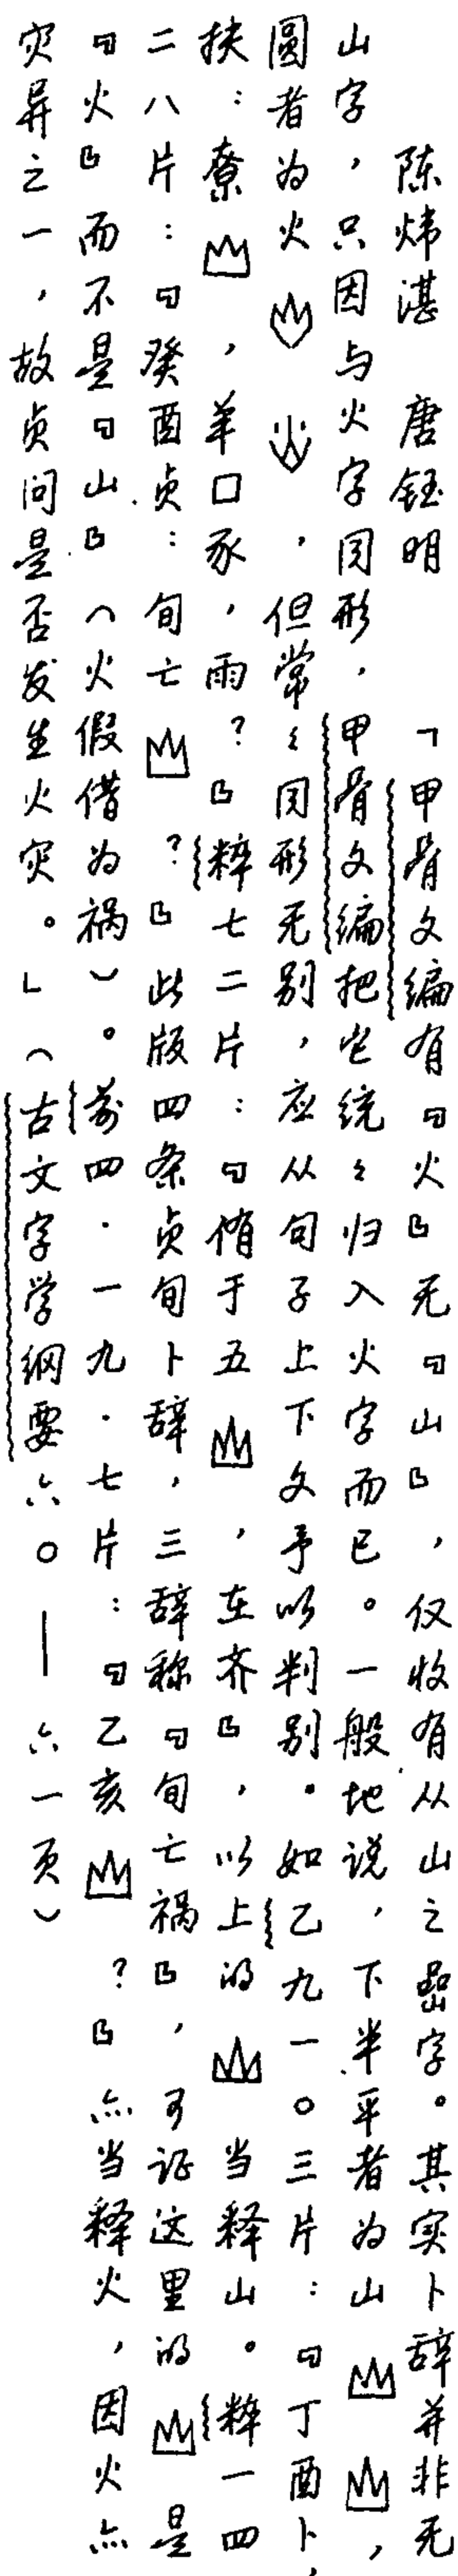 陈炜湛 唐钰明 「甲骨文编有『火』无『山』，仅收有从山之嵒字。其实卜辞并非无
山字，只因与火字同形，甲骨文编把它统统归入火字而已。一般地说，下半平者为山，
圆者为火，但常常同形无别，应从句子上下文予以判别。如乙九一〇三片：『丁酉卜，
扶：尞，羊囗豕，雨？』粹七二片：『侑于五，在齐』，以上的当释山。粹一四
二八片：『癸酉贞：旬亡？』此版四条贞旬卜辞，三辞称『旬亡祸』，可证这里的是
『火』而不是『山』（火假借为祸）。前四·一九·七片：『乙亥？』亦当释火，因火亦
灾异之一，故贞问是否发生火灾。」（古文字学纲要六〇——六一页）